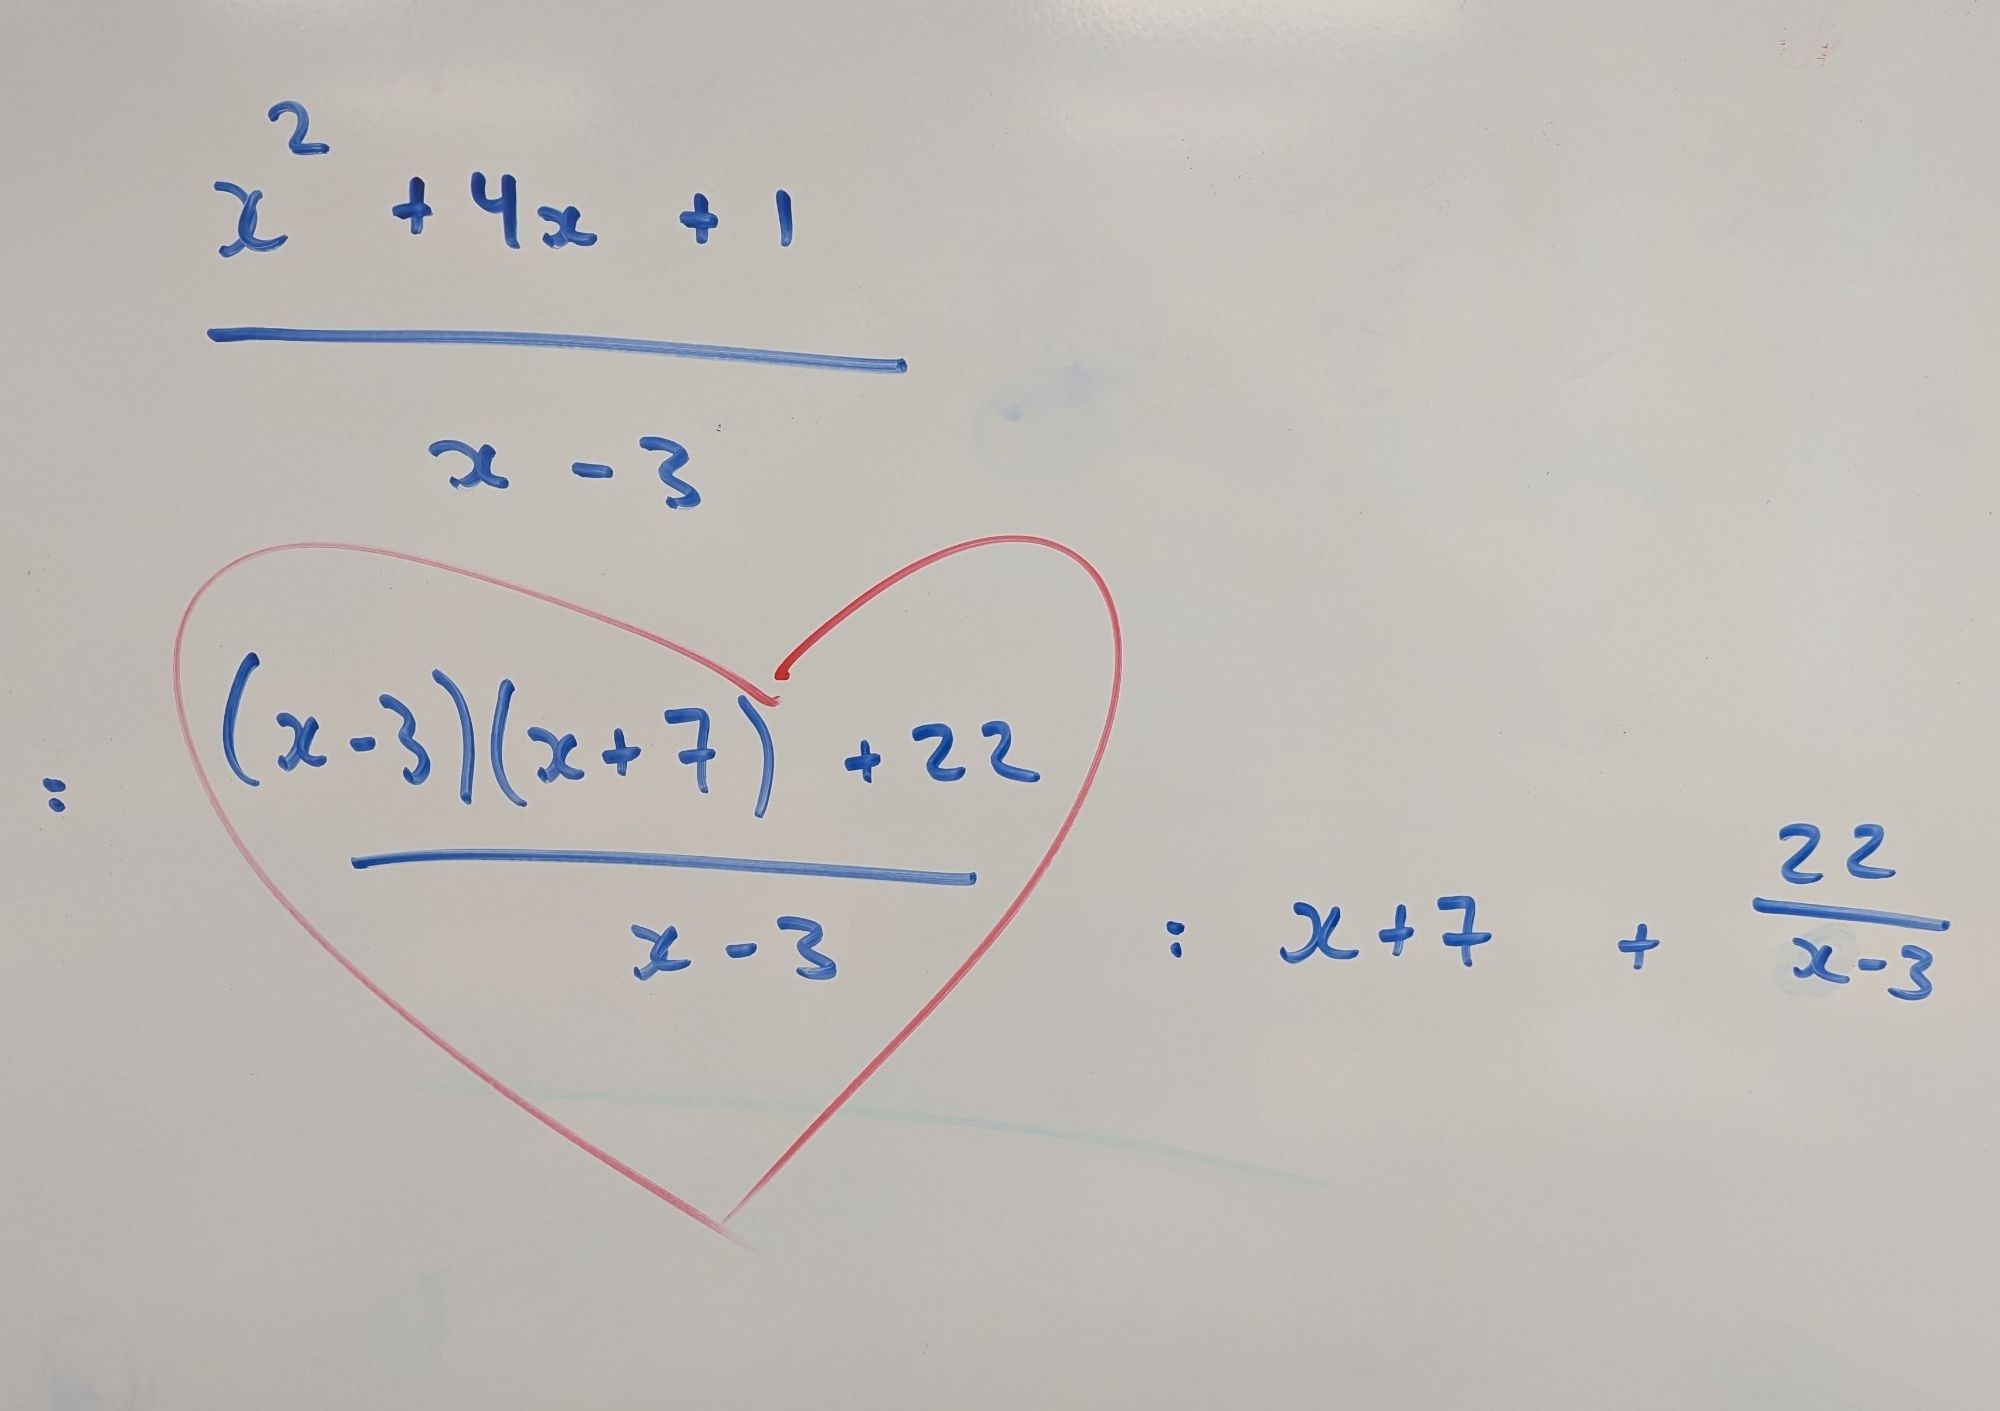 x² + 4x + 1
x - 3
: (x-3)(x+7) + 22
x - 3
: x+7 + 22
x-3